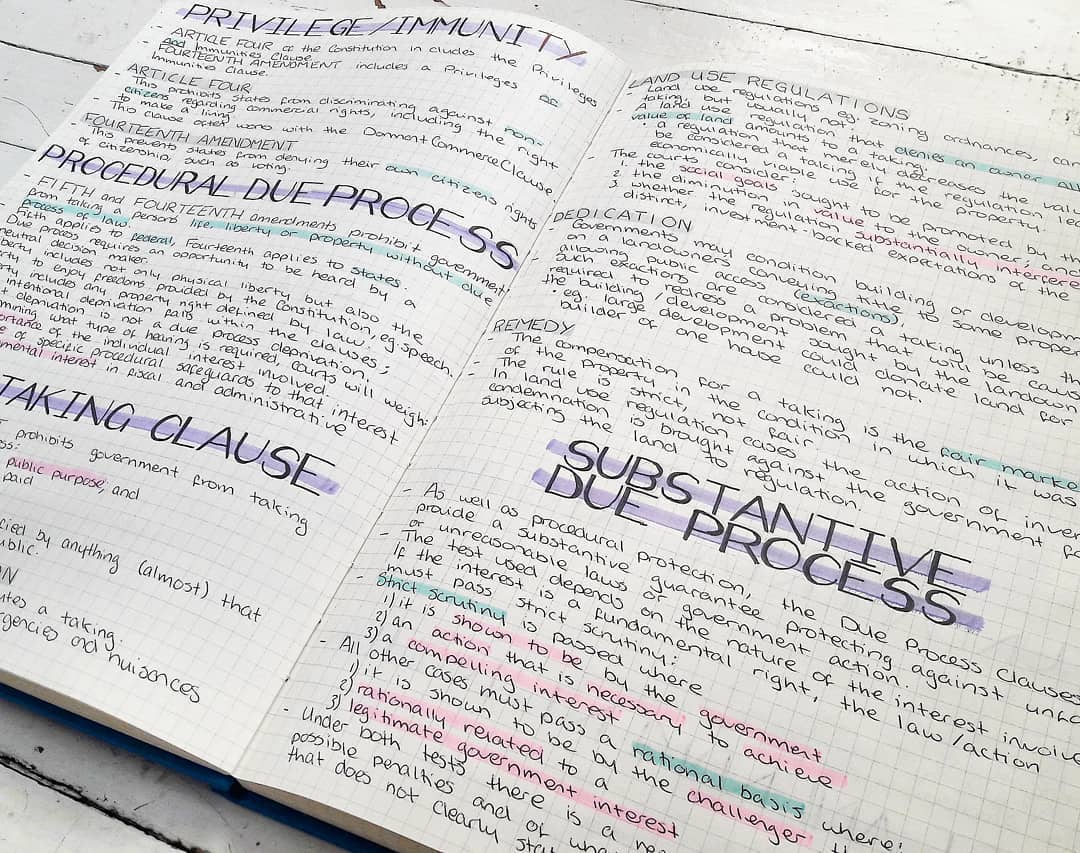 PRIVILEGE/IMMUNITY
- ARTICLE FOUR of the Constitution includes the Privileges
and Immunities Clause.
- FOURTEENTH AMENDMENT includes a Privileges or
Immunities Clause.
ARTICLE FOUR
- This prohibits states from discriminating against non-
citizens regarding commercial rights, including the right
to make a living
- This clause often works with the Dormant Commerce Clause
FOURTEENTH AMENDMENT
- This prevents states from denying their own citizens rights
of citizenship, such as voting.
PROCEDURAL DUE PROCESS
FIFTH and FOURTEENTH amendments prohibit government
from taking a persons life, liberty or property without due
process of law
Fifth applies to federal, Fourteenth applies to states
Due process requires an opportunity to be heard by a
neutral decision maker.
berty includes not only physical liberty but also the
ty to enjoy freedoms provided by the Constitution, eg. speech.
rty includes any property right defined by law.
intentional deprivation falls within the clauses;
t deprivation is not a due process deprivation.
mining what type of hearing is required, courts will weigh:
ortance of the individual interest involved.
e of specific procedural safeguards to that interest
mental interest in fiscal and administrative
TAKING CLAUSE
prohibits government from taking
ss:
public purpose, and
paid
fied by anything (almost) that
ublic.
ON
utes a taking:
rgencies and nuisances
LAND USE REGULATIONS
- Land use regulations, eg. zoning ordinances, can
taking, but usually not.
- A land use regulation that denies an owner all
value of land amounts to a taking.
a regulation that merely decreases the value
be considered a taking if the regulation
economically viable use for the property
- The courts consider:
1. the social goals sought to be promoted by the
2. the diminution in value to the owner; and
3. whether the regulation substantially interfere
distinct, investment-backed expectations of the
DEDICATION
- Governments may condition building or developm
on a landowners conveying title to some proper
allowing public access (exactions).
- Such exactions are considered a taking unless th
required to redress a problem that will be caus
the building/development sought by the landown
• eg. large development could donate land for
builder of one house could not.
REMEDY
- The compensation for a taking is the fair marke
of the property in the condition in which it was
- The rule is strict, not fair
- In land use regulation cases, the action of inver
condemnation is brought against the government fo
subjecting the land to regulation.
SUBSTANTIVE
DUE PROCESS
- As well as procedural protection, the Due Process Clauses
provide a substantive guarantee protecting against
or unreasonable laws or government action.
- The test used depends on the nature of the interest involve
If the interest is a fundamental right, the law/action
must pass strict scrutiny:
- Strict scrutiny is passed where
1) it is shown to be by the government
2) an action that is necessary to achieve
3) a compelling interest
- All other cases must pass a rational basis where:
1) it is shown to be by the challenger
2) rationally related to a
3) legitimate government interest
- Under both tests there is a
possible penalties and of
that does not clearly